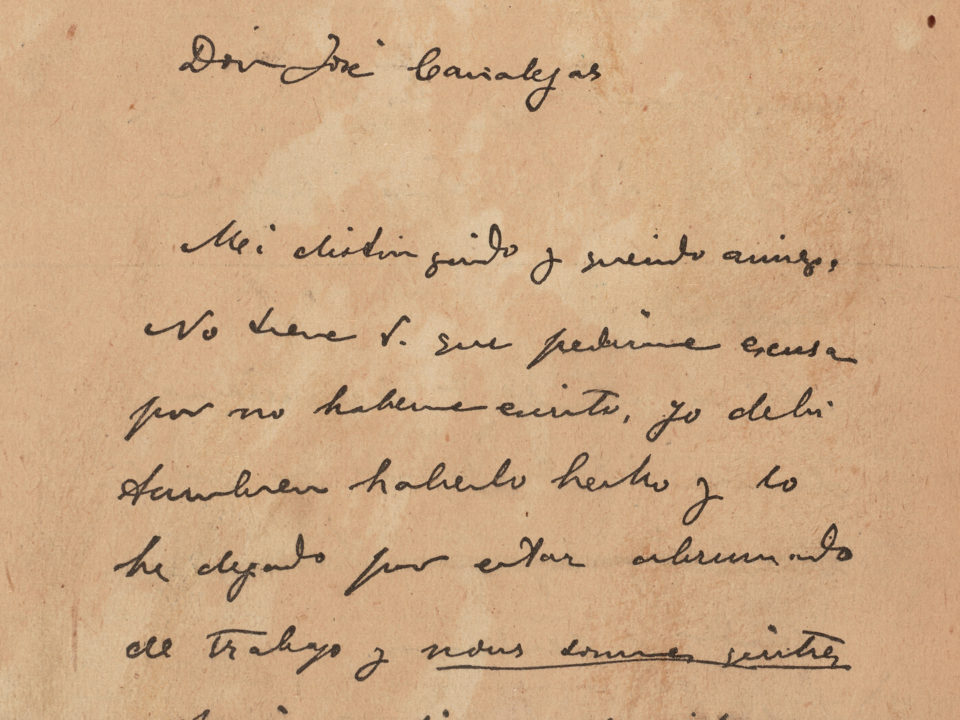 Don José Canalejas
Mi distinguido y querido amigo,
No tiene V. que pedirme excusa
por no haberme escrito, yo debi
tambien haberlo hecho y lo
he dejado por estar abrumado
de trabajo y nous sommes quittes